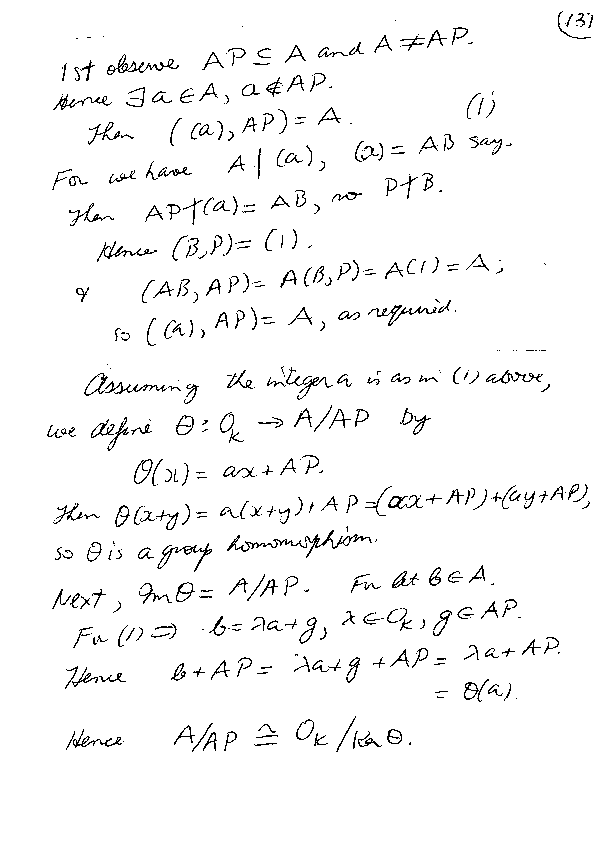 (13)
1st observe AP ⊆ A and A ≠ AP.
Hence ∃ a ∈ A, a ∉ AP.
Then ((a), AP) = A. (1)
For we have A | (a), (a) = AB say.
Then AP ∤ (a) = AB, so P ∤ B.
Hence (B, P) = (1).
& (AB, AP) = A(B, P) = A(1) = A;
so ((a), AP) = A, as required.
Assuming the integer a is as in (1) above,
we define θ : O_k → A/AP by
θ(x) = ax + AP.
Then θ(x+y) = a(x+y) + AP = (ax + AP) + (ay + AP),
so θ is a group homomorphism.
Next, Im θ = A/AP. For let b ∈ A.
For (1) ⇒ b = λa + g, λ ∈ O_k, g ∈ AP.
Hence b + AP = λa + g + AP = λa + AP.
= θ(a).
Hence A/AP ≅ O_k / Ker θ.